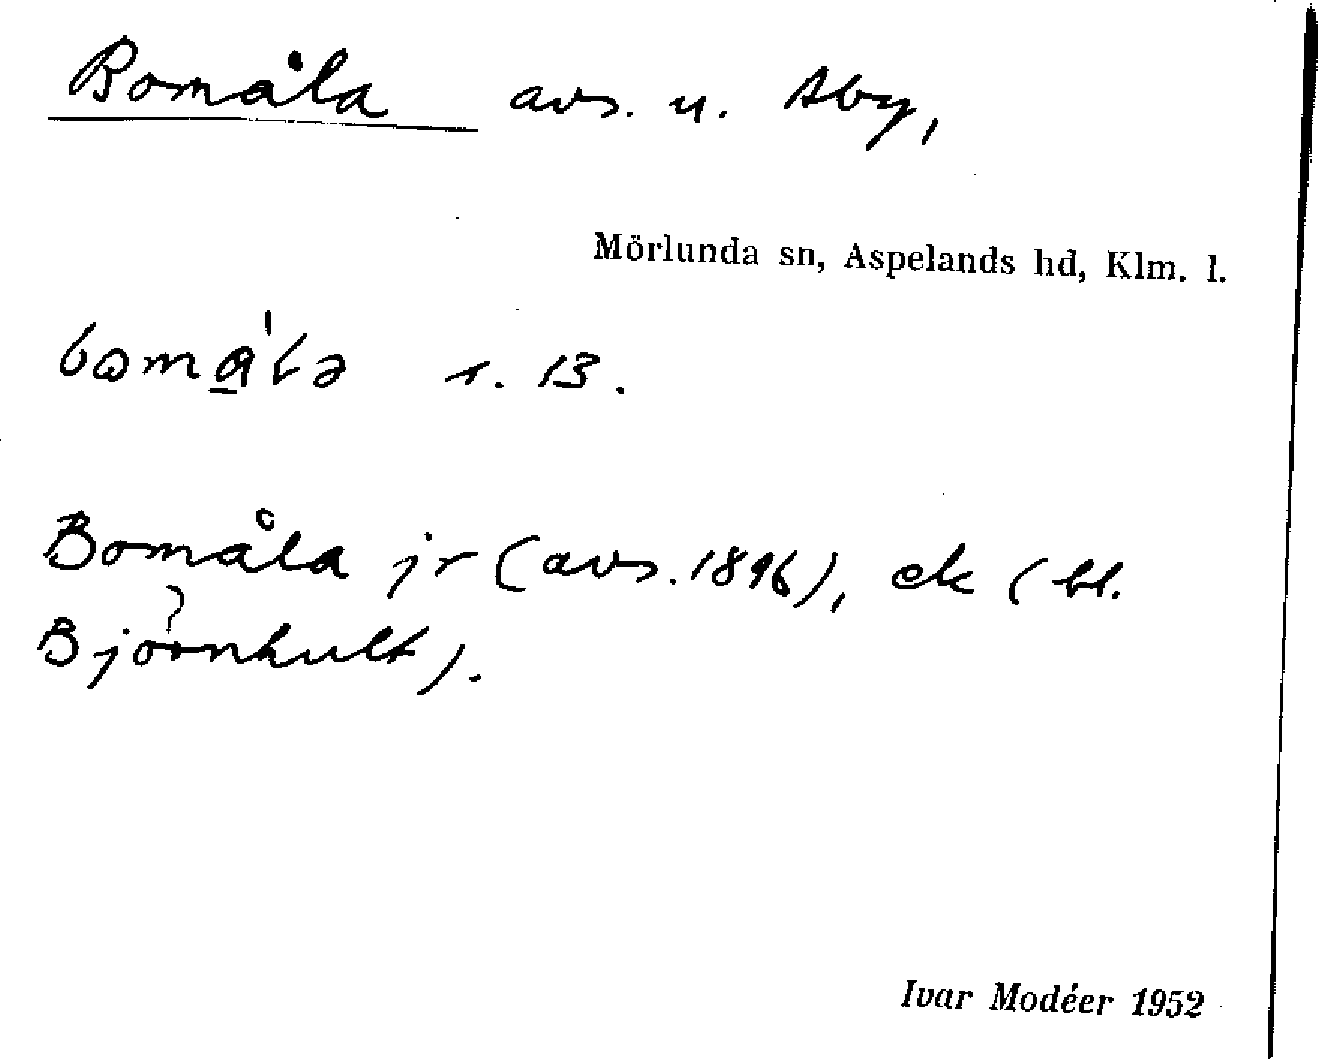 Bomåla avs. u. Aby,
Mörlunda sn, Aspelands hd, Klm. l.
r. 13.
Bomåla jr (avs. 1896), ek (bl.
Björnhult).
Ivar Modéer 1952